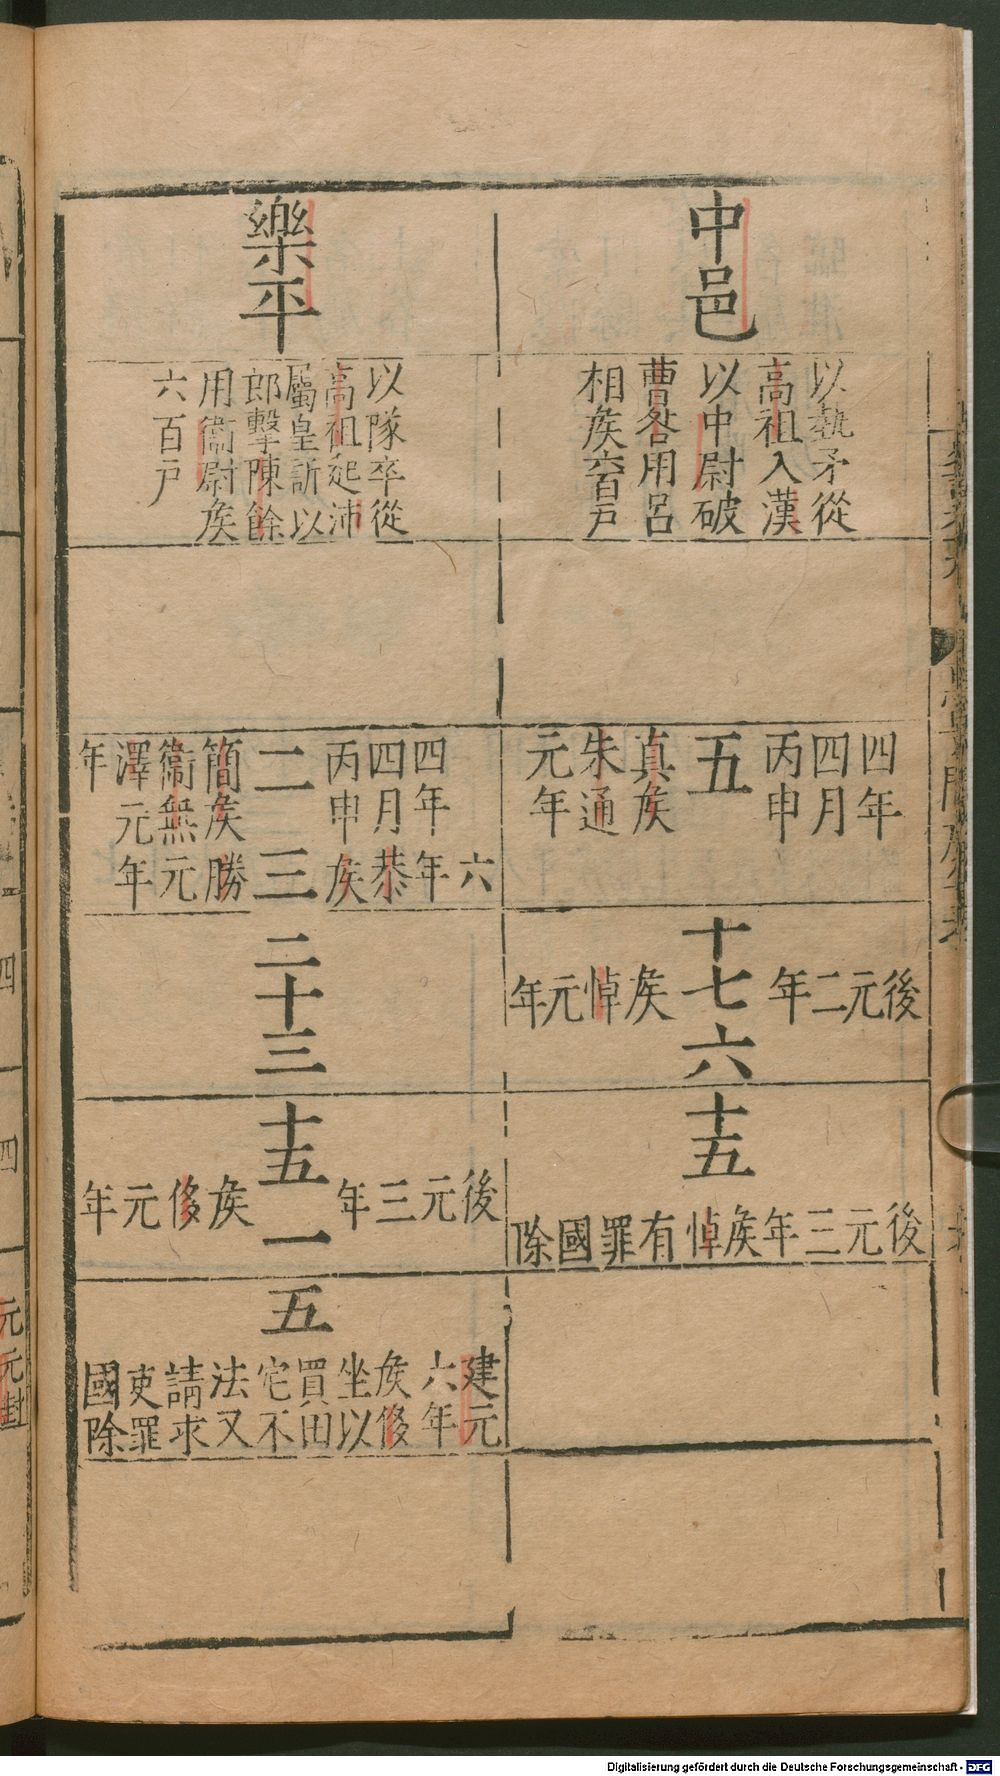 中邑
以執矛從
高祖入漢
以中尉破
曹咎用呂
相矦六百戶
四年
四月
丙申
五
真矦
朱通
元年
十七
後元二年
六
矦悼元年
十五
後元三年矦悼有罪國除
樂平
以隊卒從
高祖起沛
屬皇訢以
郎擊陳餘
用衞尉矦
六百戶
四年
四月
丙申
二
簡矦
衞無
澤元
年
六
年
恭
矦
三
勝
元
年
二十三
十五
後元三年
一
矦侈元年
五
建元
六年
矦侈
坐以
買田
宅不
法又
請求
吏罪
國除
四
四
元
元封
Digitalisierung gefördert durch die Deutsche Forschungsgemeinschaft - DFG